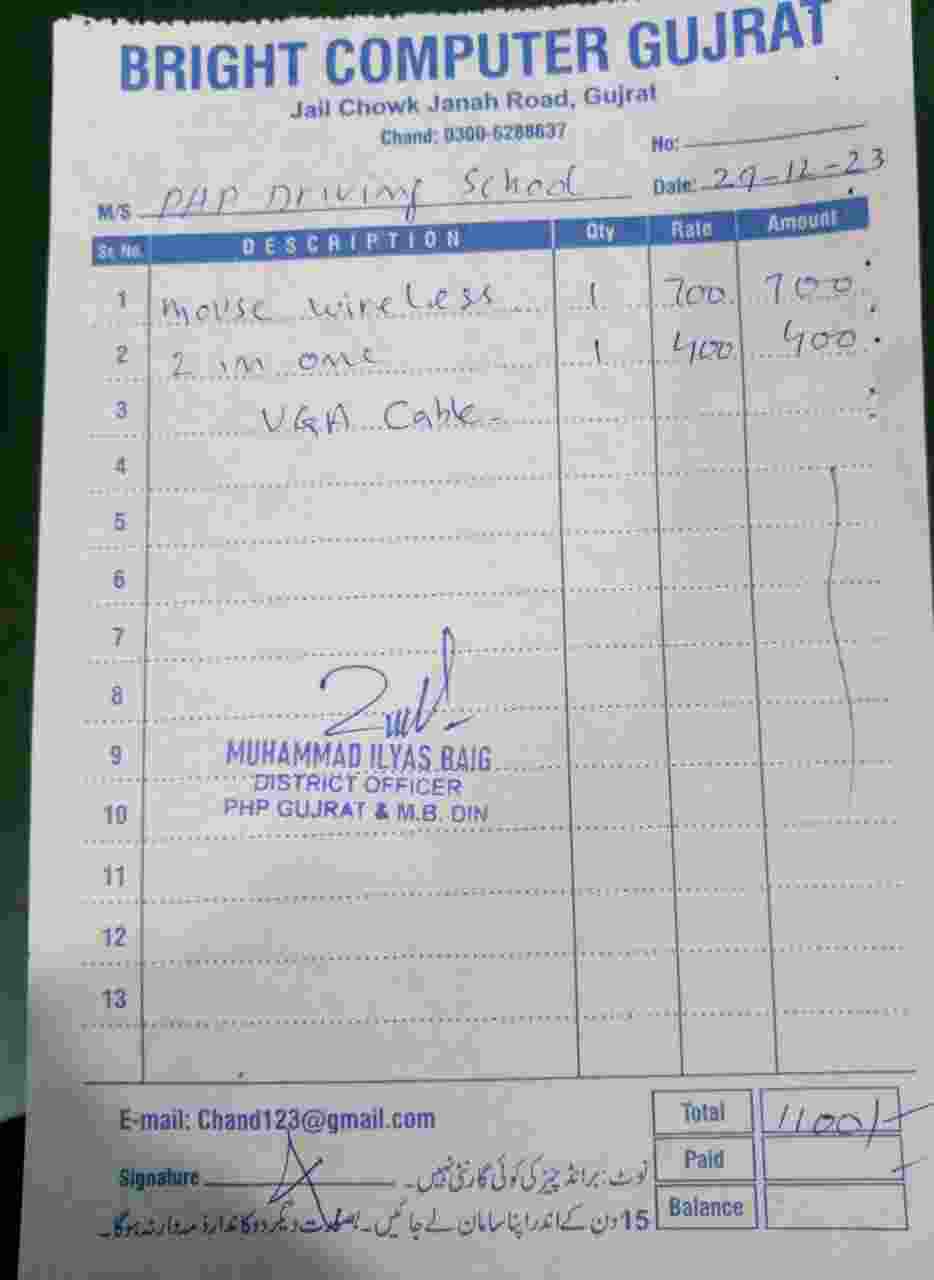 BRIGHT COMPUTER GUJRAT
Jail Chowk Janah Road, Gujrat
Chand: 0300-6288637
No:
M/S PHP Driving School Date: 29-12-23
Sr. No. DESCRIPTION Qty Rate Amount
1 mouse wireless 1 700 700
2 2 in one 1 400 400
3 VGA Cable
4
5
6
7
8
9 MUHAMMAD ILYAS BAIG
DISTRICT OFFICER
10 PHP GUJRAT & M.B. DIN
11
12
13
E-mail: Chand123@gmail.com Total 1100/-
Signature نوٹ: برانڈ چیز کی کوئی گارنٹی نہیں۔ Paid
15 دن کے اندر اپنا سامان لے جائیں۔ بصورت دیگر دوکاندار ذمہ دار نہ ہوگا۔ Balance